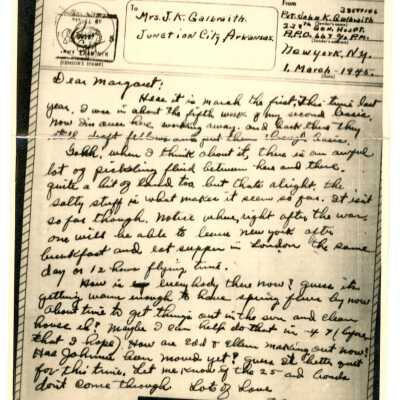 To
Mrs. J. K. Galbraith
Junction City, Arkansas.
From
Pvt. John K. Galbraith
Gen. Hosp.
A.P.O. 667 % P.M.
New York, N.Y.
1. March - 1945.
Dear Margaret:
Here it is march the first, This time last
year, I was in about the fifth week of my second basic.
Now I'm over here working away, and back there they
still draft fellows and put them through basic.
Gohh, when I think about it, there is an awful
lot of pickling fluid between here and there.
quite a bit of land too but thats alright, the
salty stuff is what makes it seem so far. It isn't
so far though. Notice where, right after the war
one will be able to leave new york after
breakfast and eat supper in London the same
day or 12 hours flying time.
How is everybody there now? guess its
getting warm enough to have spring fever by now
about time to get things out in the sun and clean
house eh? Maybe I can help do that in - 4
that I hope). How are & Ellen making out now?
Has Johnnie been moved yet? guess its better quit
for this time. Let me know if the 25 and bonds
don't come through Lots of Love